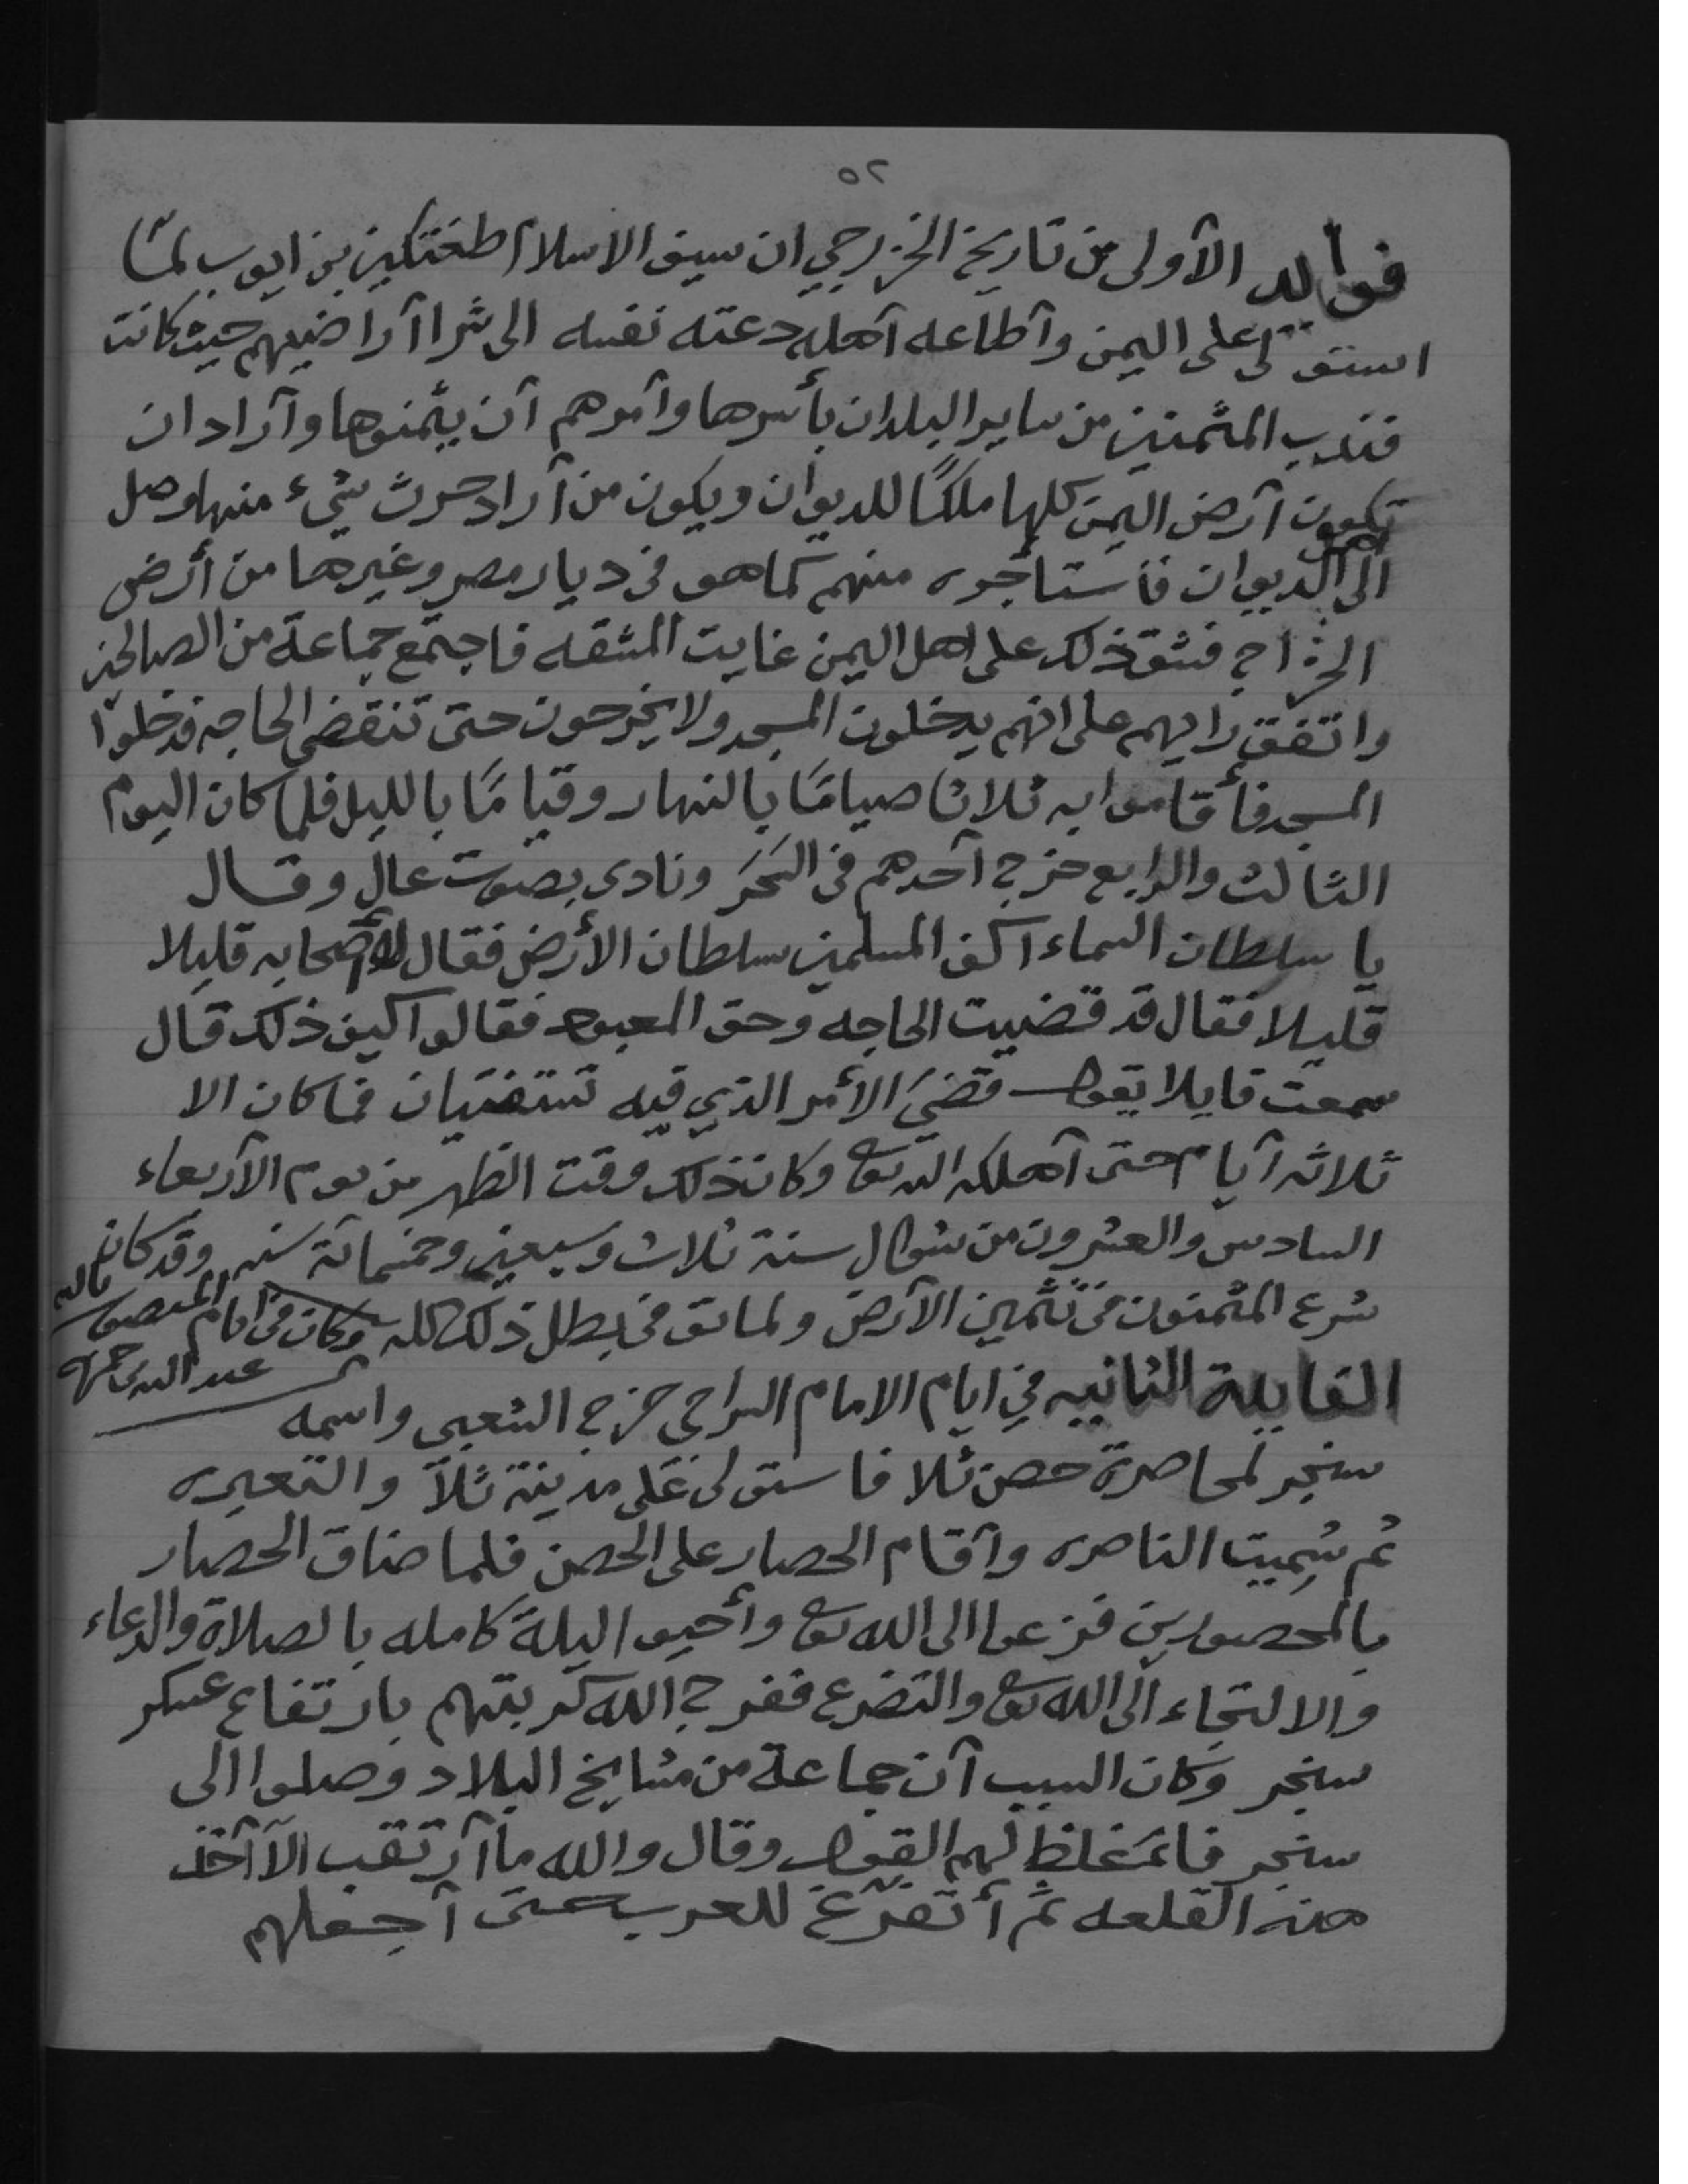 ٥٢
فوائد الأولى من تاريخ الخزرجي ان سيف الاسلام طغتكين بن ايوب لمّا
استولى على اليمن وأطاعه أهله دعته نفسه الى شرا أراضيهم حيث كانت
فندب المثمنين من ساير البلدان بأسرها وأمرهم أن يثمنوها وأراد ان
تكون أرض اليمن كلها ملكًا للديوان ويكون من أراد حرث شيء منها وصل
الى أهل الديوان فأستاجره منهم كما هو في ديار مصر وغيرها من أرض
الخراج فشق ذلك على اهل اليمن غايت المشقه فاجتمع جماعة من الصالحين
واتفق رايهم على انهم يدخلون المسجد ولا يخرجون حتى تنقضي الحاجه فدخلوا
المسجد فأقاموا به ثلاثا صيامًا بالنهار وقيامًا بالليل فلما كان اليوم
الثالث والرابع خرج أحدهم في السَحَر ونادى بصوت عال وقال
يا سلطان السماء اكف المسلمين سلطان الأرض فقال له أصحابه قليلا
قليلا فقال قد قضيت الحاجه وحق المعبود فقالوا كيف ذلك قال
سمعت قايلا يقول قضيَ الأمر الذي فيه تستفتيان فما كان الا
ثلاثه أيام حتى أهلكه الله تعالى وكان ذلك وقت الظهر من يوم الأربعاء
السادس والعشرون من شوال سنة ثلاث وسبعين وخمسمائة سنه وقد كان
شرع المثمنون في تثمين الأرض ولما توفى بطل ذلك كله وكان في ايام المنصور بالله
عبد الله بن حمزه
الفايدة الثانيه في ايام الامام السراجي خرج الشعبي واسمه
سنجر لمحاصرة حصن ثلا فاستولى على مدينة ثلاّ والتعيره
ثم سُمِيت الناصره وأقام الحصار على الحصن فلما ضاق الحصار
بالمحصورين فزعوا الى الله تعالى وأحيوا ليلة كامله بالصلاة والدعاء
والالتجاء الى الله تعالى والتضرع ففرج الله كربتهم بارتفاع عسكر
سنجر وكان السبب أن جماعة من مشايخ البلاد وصلوا الى
سنجر فاغلظ لهم القول وقال والله ما أرتقب الا أخذ
هذه القلعه ثم أتفرّغ للعرب حتى أجعلهم